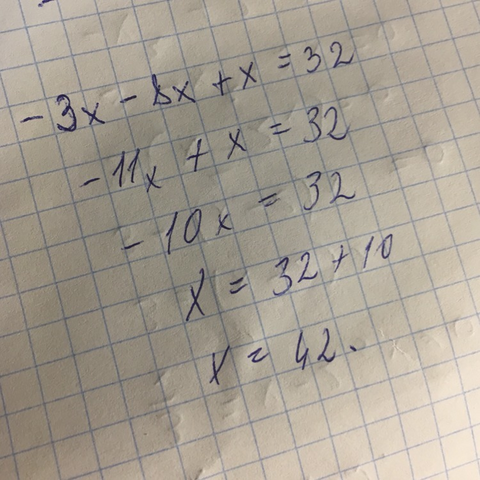 -3x - 8x + x = 32
-11x + x = 32
-10x = 32
x = 32 + 10
x = 42.